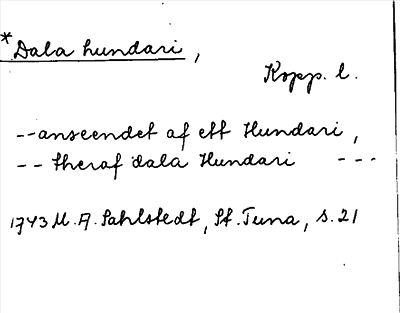 *Dala hundari,
Kopp. l.
--anseendet af ett Hundari,
-- theraf dala Hundari ---
1743 M. A. Sahlstedt, St. Tuna, s. 21